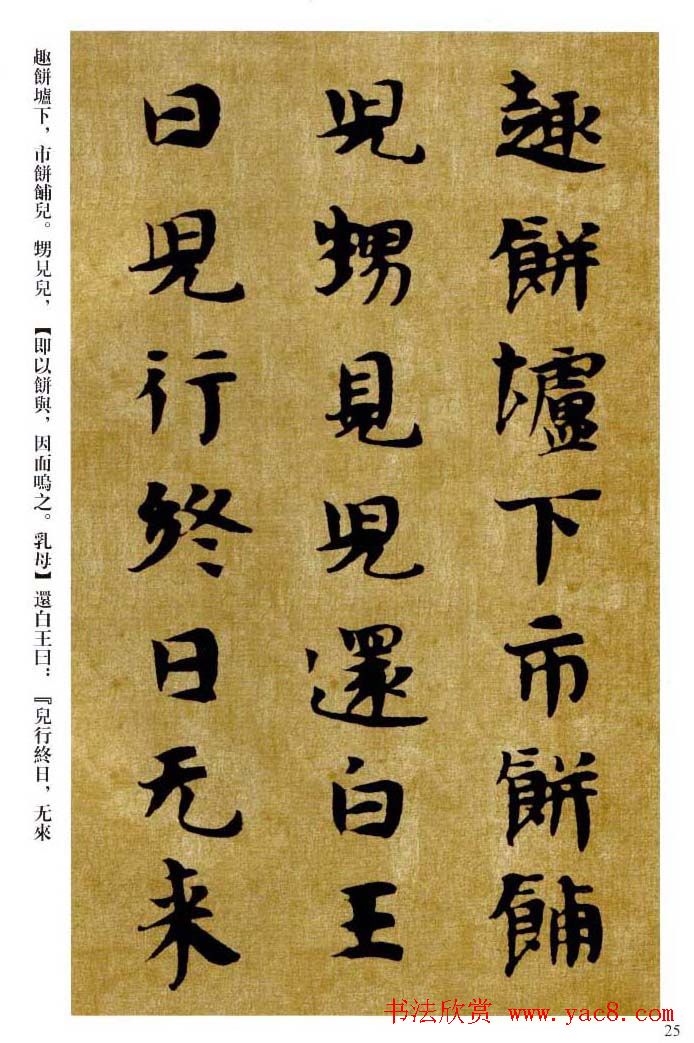 趣餅壚下市餅餔
兒甥見兒還白王
曰兒行終日无来
趣餅壚下，市餅餔兒。甥見兒，【即以餅與，因而嗚之。乳母】還白王曰：『兒行終日，无來
书法欣赏 www.yac8.com
25